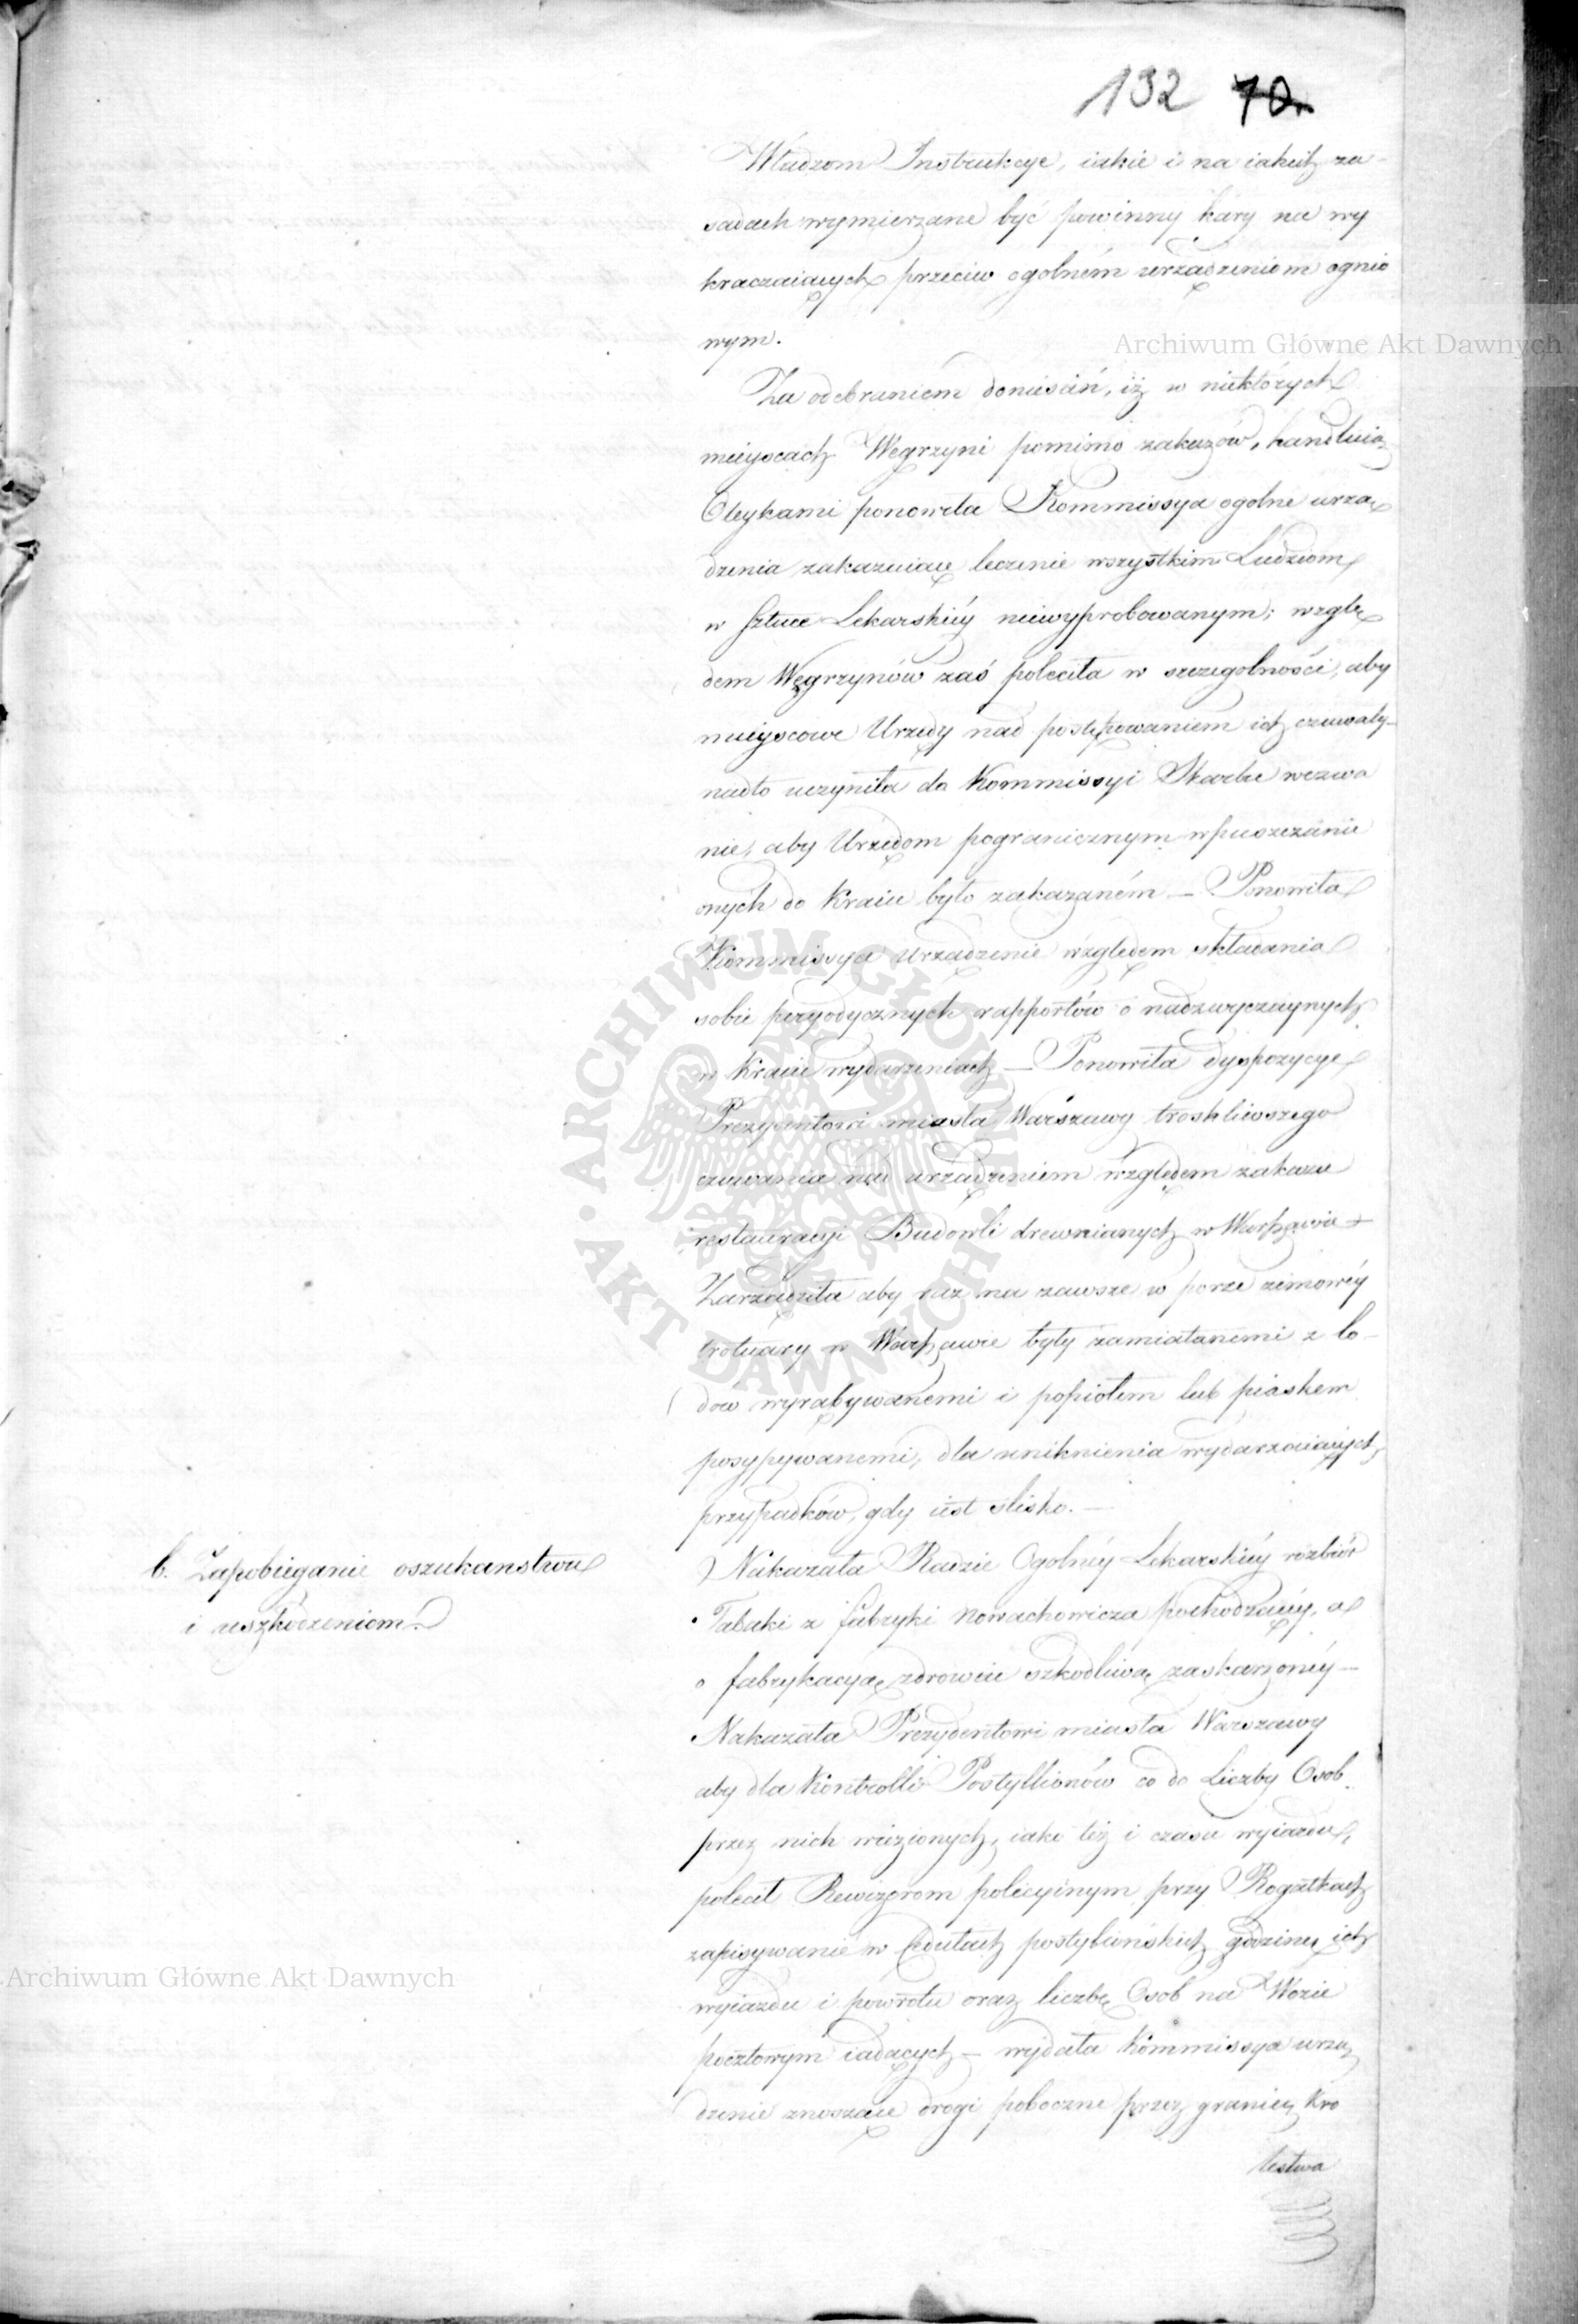 132 70
Władzom Instrukcye, iakie i na iakich za-
sadach wymierzane być powinny kary na wy
kraczaiących przeciw ogolném urządzeniom ognio
wym.
Archiwum Główne Akt Dawnych
Za odebraniem doniesień, iż w niektórych
mieyscach Węgrzyni pomimo zakazów, handluią
Oleykami ponowiła Kommissya ogolne urzą
dzenia zakazuiące leczenie wszystkim Ludziom
w Sztuce Lekarskiéy niewyprobowanym; wzglę
dem Węgrzynów zaś poleciła w szczegolności, aby
mieyscowe Urzędy nad postępowaniem ich czuwały-
nadto uczyniła do Kommissyi Skarbu wezwa
nie, aby Urzędom pogranicznym wpuszczanie
onych do Kraiu było zakazaném — Ponowiła
Kommissya urządzenie względem składania
sobie peryodycznych rapportów o nadzwyczaynych
w Kraiu wydarzeniach — Ponowiła dyspozycye
Prezydentowi miasta Warszawy troskliwszego
czuwania nad urządzeniem względem zakazu
restauracyi Budowli drewnianych w Warszawie —
Zarządziła aby raz na zawsze w porze zimowéy
trotuary w Warszawie były zamiatanemi z lo-
dów wyrąbywanemi i popiołem lub piaskem
posypywanemi, dla uniknienia wydarzaiących
przypadków, gdy iest slisko. —
b. Zapobieganie oszukanstwu
i uszkodzeniom.
Nakazała Radzie Ogolnéy Lekarskiéy rozbiór
Tabaki z fabryki Nowachowicza pochodzącéy, a
o fabrykacyą zdrowiu szkodliwą zaskarzonéy —
Nakazała Prezydentowi miasta Warszawy
aby dla Kontrolli Postyllionów co do Liczby Osob
przez nich wiezionych, iako też i czasu wyiazdu,
polecił Rewizorom policyinym przy Rogatkach
zapisywanie w Cedułach postyliońskich godzinę ich
Archiwum Główne Akt Dawnych
wyiazdu i powrotu oraz liczbę Osob na Wozie
pocztowym iadących — wydała Kommissya urzą
dzenie znoszące drogi poboczne przez granicę Kro
lestwa
ARCHIWUM GŁÓWNE · AKT DAWNYCH ·